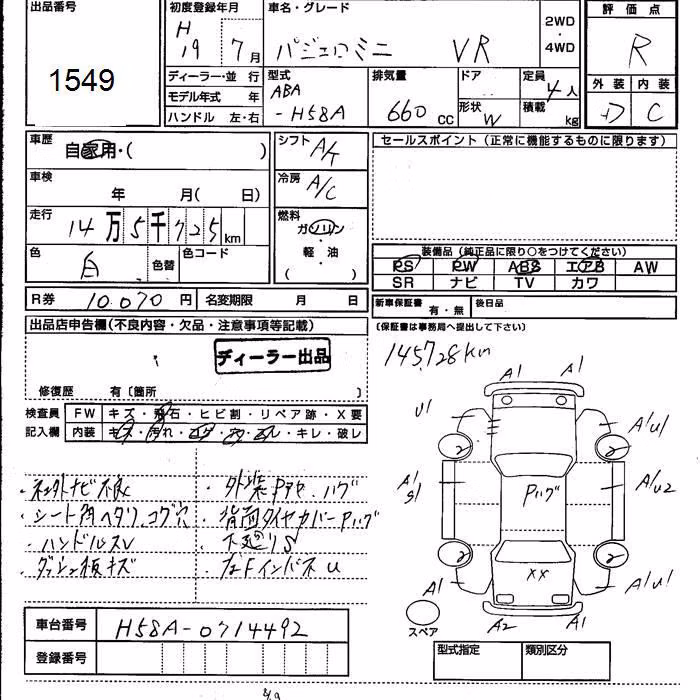 出品番号
1549
初度登録年月
H
19 7月
車名・グレード
パジェロミニ VR
2WD
・
4WD
評価点
R
外装 内装
D C
ディーラー・並 行
モデル年式 年
ハンドル 左・右
型式
ABA
-H58A
排気量
660 cc
ドア
形状 W
定員
4人
積載
kg
車歴
自家用・( )
車検
年 月( 日)
走行
14万5千725km
色
白
色替
色コード
シフト
A/T
冷房
A/C
燃料
ガソリン
・
軽 油
( )
セールスポイント (正常に機能するものに限ります)
装備品 (純正品に限り○をつけてください)
PS PW ABS エアB AW
SR ナビ TV カワ
R券 10.070円 名変期限 月 日
新車保証書 有・無 後日品
(保証書は事務局へ提出して下さい)
出品店申告欄(不良内容・欠品・注意事項等記載)
ディーラー出品
145728km
修復歴 有〔箇所 〕
検査員
記入欄
FW キズ・飛石・ヒビ割・リペア跡・X要
内装 キズ・汚れ・コゲ・穴・スレ・キレ・破レ
・社外ナビ不良
・シート角ヘタリ、コゲ穴
・ハンドルスレ
・ダッシュ板キズ
・外装Pアセ、ハゲ
・背面タイヤカバーPハゲ
・下廻りS
A1 A1
U1
A1U1
A1
S1
Pハゲ
A1U2
2 2
2 2
XX
A1
A1U1
A2 A1
スペア
車台番号 H58A-0714492
登録番号
型式指定 類別区分